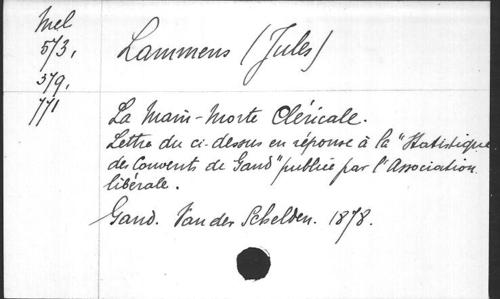 Mel
573,
579,
771
Lammens (Jules)
La Main-Morte Cléricale.
Lettre du ci-dessus en réponse à la "Statistique
des Couvents de Gand" publiée par l'Association
libérale.
Gand. Van der Schelden. 1878.